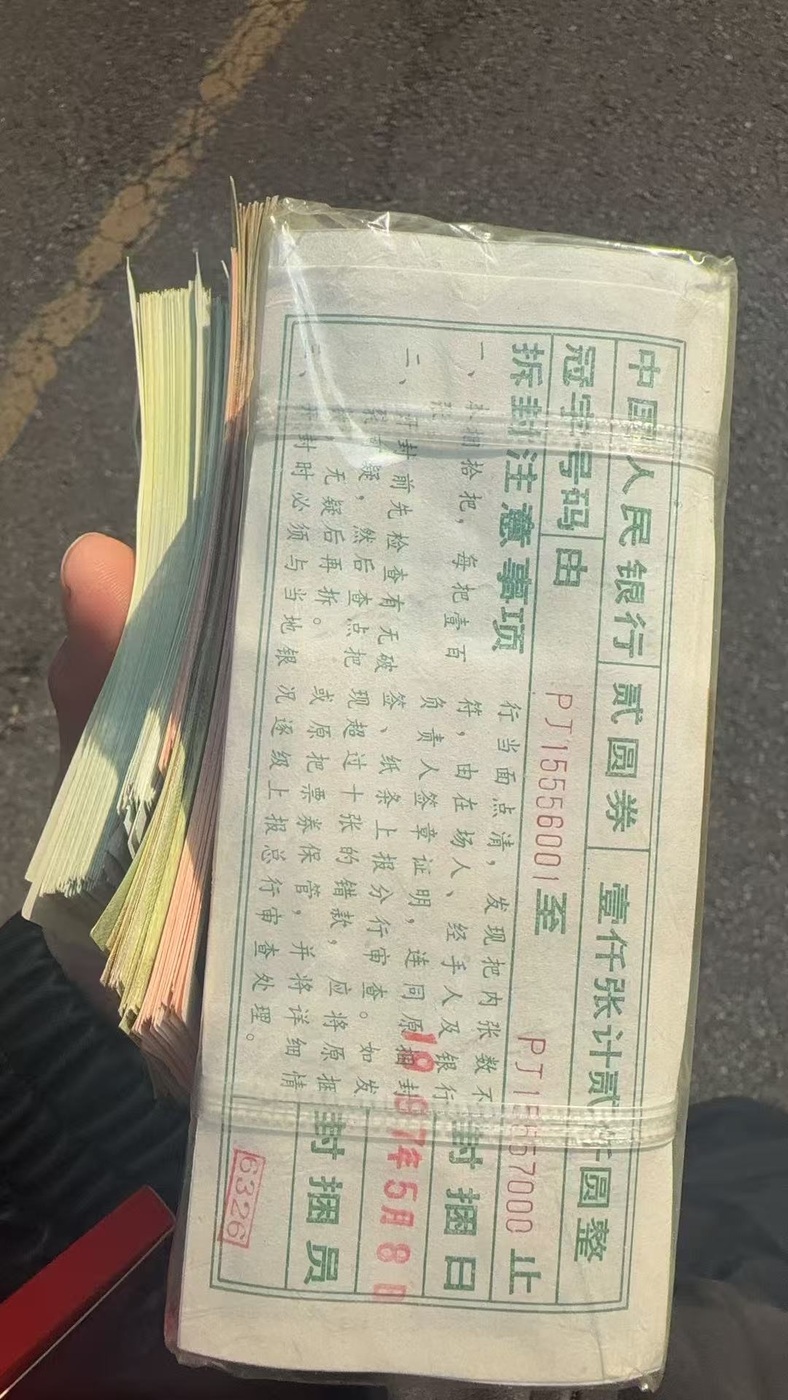 中国人民银行 贰圆券 壹仟张计贰仟圆整
冠字号码 由 PJ15556001 至 PJ15557000 止
拆封注意事项
一、本捆拾把，每把壹百
张
二、开封前先检查有无破
疑，然后查点把
无疑后再拆。
开封时必须与当地银
行当面点清，发现把内张数不
符，由在场人、经手人及银行
负责人签章证明，连同原捆封
签、纸条上报分行审查。如发
现超过十张的错款，应将原捆
或原把票券保管，并将详细情
况逐级上报总行审查处理。
封捆日
1997年5月8日
封捆员
6326